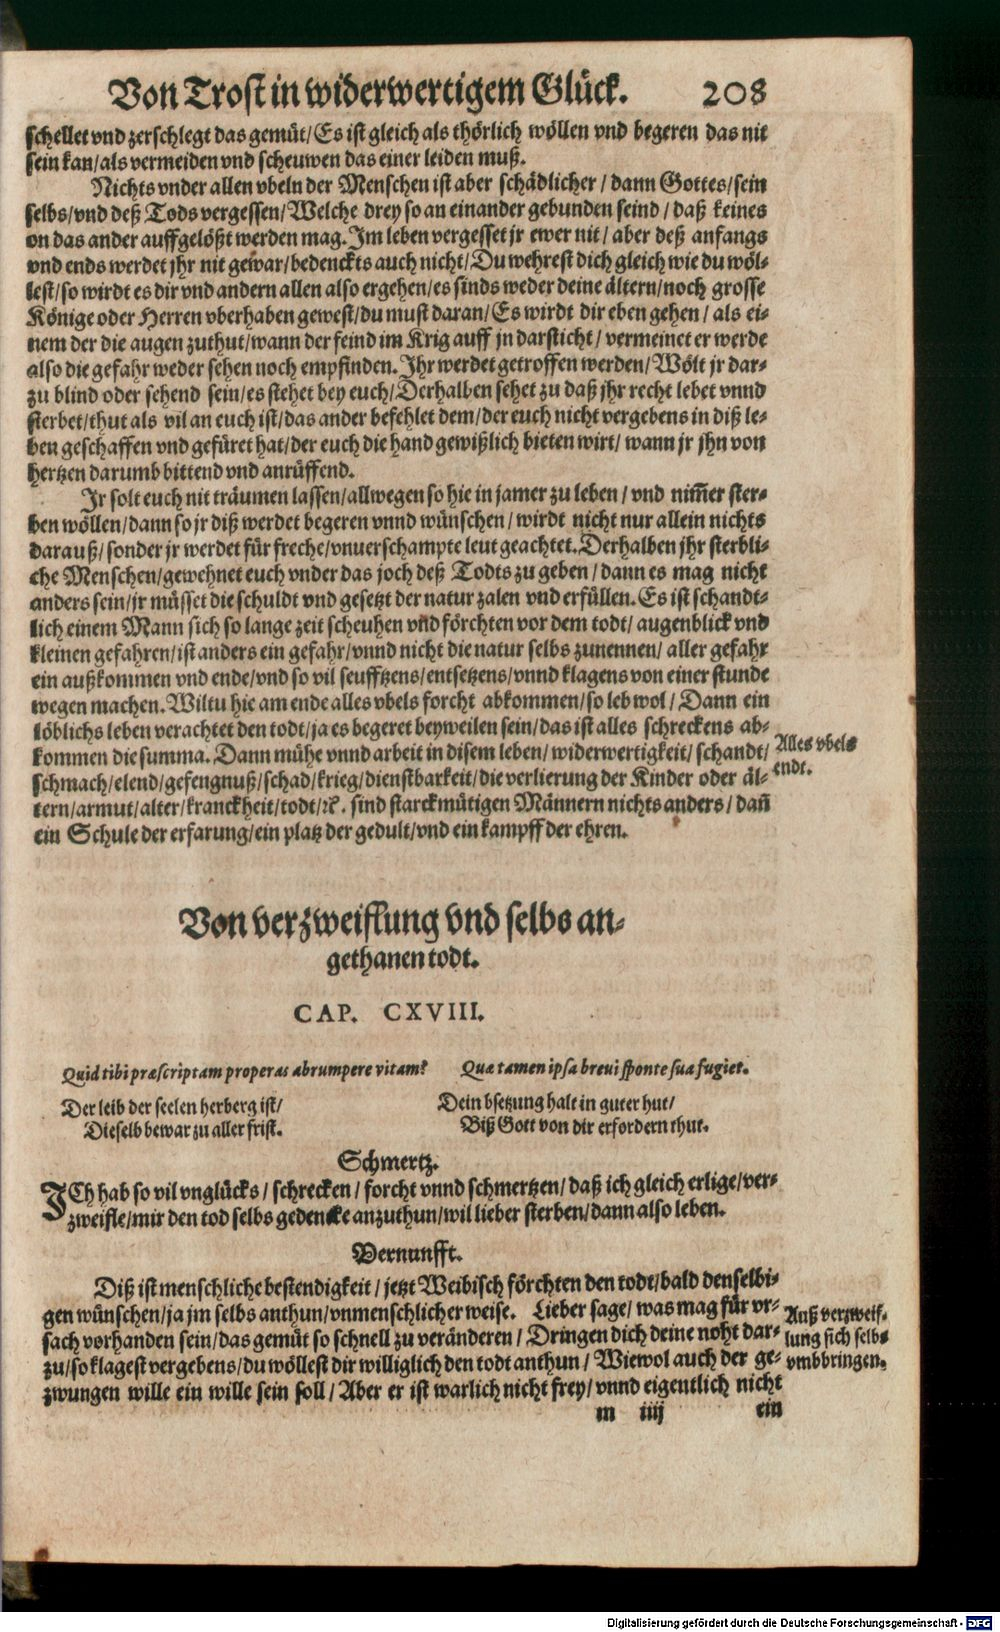 Von Trost in widerwertigem Glück. 208
schellet vnd zerschlegt das gemüt/Es ist gleich als thörlich wöllen vnd begeren das nit
sein kan/als vermeiden vnd scheuwen das einer leiden muß.
Nichts vnder allen vbeln der Menschen ist aber schädlicher/dann Gottes/sein
selbs/vnd deß Tods vergessen/Welche drey so an einander gebunden seind/daß keines
on das ander auffgelößt werden mag. Im leben vergesset jr ewer nit/aber deß anfangs
vnd ends werdet jhr nit gewar/bedenckts auch nicht/Du wehrest dich gleich wie du wöl-
lest/so wirdt es dir vnd andern allen also ergehen/es sinds weder deine ältern/noch grosse
Könige oder Herren vberhaben gewest/du must daran/Es wirdt dir eben gehen/als ei-
nem der die augen zuthut/wann der feind im Krig auff jn darsticht/vermeinet er werde
also die gefahr weder sehen noch empfinden. Ihr werdet getroffen werden/Wölt jr dar-
zu blind oder sehend sein/es stehet bey euch/Derhalben sehet zu daß jhr recht lebet vnnd
sterbet/thut als vil an euch ist/das ander befehlet dem/der euch nicht vergebens in diß le-
ben geschaffen vnd gefüret hat/der euch die hand gewißlich bieten wirt/wann jr jhn von
hertzen darumb bittend vnd anrüffend.
Ir solt euch nit träumen lassen/allwegen so hie in jamer zu leben/vnd nim̃er ster-
ben wöllen/dann so jr diß werdet begeren vnnd wünschen/wirdt nicht nur allein nichts
darauß/sonder jr werdet für freche/vnuerschampte leut geachtet. Derhalben jhr sterbli-
che Menschen/gewehnet euch vnder das joch deß Todts zu geben/dann es mag nicht
anders sein/jr müsset die schuldt vnd gesetzt der natur zalen vnd erfüllen. Es ist schandt-
lich einem Mann sich so lange zeit scheuhen vñd förchten vor dem todt/augenblick vnd
kleinen gefahren/ist anders ein gefahr/vnnd nicht die natur selbs zunennen/aller gefahr
ein außkommen vnd ende/vnd so vil seufftzens/entsetzens/vnnd klagens von einer stunde
wegen machen. Wiltu hie am ende alles vbels forcht abkommen/so leb wol/Dann ein
löblichs leben verachtet den todt/ja es begeret beyweilen sein/das ist alles schreckens ab-
kommen die summa. Dann mühe vnnd arbeit in disem leben/widerwertigkeit/schandt/
schmach/elend/gefengnuß/schad/krieg/dienstbarkeit/die verlierung der Kinder oder äl-
tern/armut/alter/kranckheit/todt/ꝛc. sind starckmütigen Männern nichts anders/dañ
ein Schule der erfarung/ein platz der gedult/vnd ein kampff der ehren.
Alles vbels
endt.
Von verzweiflung vnd selbs an-
gethanen todt.
CAP. CXVIII.
Quid tibi præscriptam properas abrumpere vitam? Quæ tamen ipsa brevi sponte sua fugiet.
Der leib der seelen herberg ist/ Dein bsetzung halt in guter hut/
Dieselb bewar zu aller frist. Biß Gott von dir erfordern thut.
Schmertz.
ICh hab so vil vnglücks/schrecken/forcht vnnd schmertzen/daß ich gleich erlige/ver-
zweifle/mir den tod selbs gedencke anzuthun/wil lieber sterben/dann also leben.
Vernunfft.
Diß ist menschliche bestendigkeit/jetzt Weibisch förchten den todt/bald denselbi-
gen wünschen/ja jm selbs anthun/vnmenschlicher weise. Lieber sage/was mag für vr-
sach vorhanden sein/das gemüt so schnell zu veränderen/Dringen dich deine noht dar-
zu/so klagest vergebens/du wöllest dir williglich den todt anthun/Wiewol auch der ge-
zwungen wille ein wille sein soll/Aber er ist warlich nicht frey/vnnd eigentlich nicht
Auß verzweif-
lung sich selbs
vmbbringen.
m iiij ein
Digitalisierung gefördert durch die Deutsche Forschungsgemeinschaft - DFG